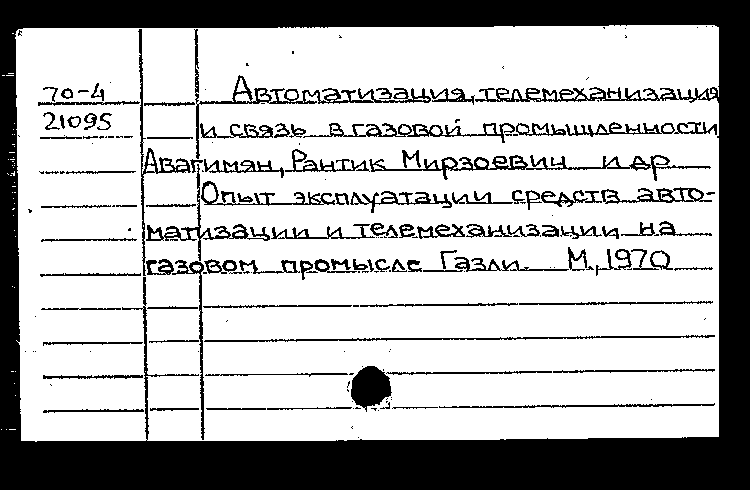 70-4 Автоматизация, телемеханизация
21095 и связь в газовой промышленности
Авагимян, Рантик Мирзоевич и др.
Опыт эксплуатации средств авто-
матизации и телемеханизации на
газовом промысле Газли. М., 1970